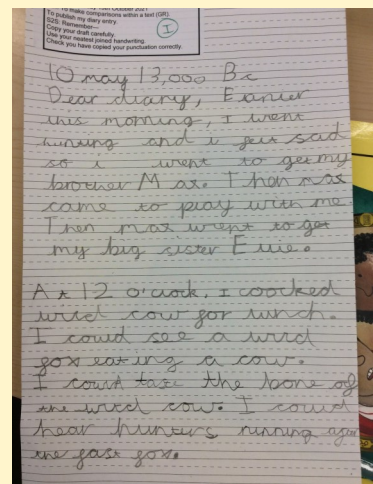 October 2021
To make comparisons within a text (GR).
To publish my diary entry.
S2S: Remember—
Copy your draft carefully.
Use your neatest joined handwriting.
Check you have copied your punctuation correctly.
I
10 may 13,000 Bc
Dear diary, Earlier
this morning, I went
hunting and i felt sad
so i went to get my
brother Max. Then max
came to play with me
Then max went to get
my big sister Ellie.
At 12 o'clock, I coocked
wild cow for lunch.
I could see a wild
fox eating a cow.
I could taste the bone of
the wild cow. I could
hear hunters running after
the fast fox.